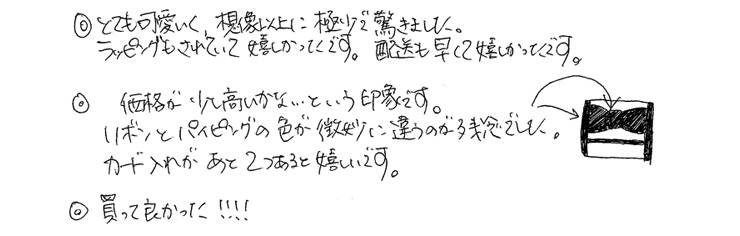 ◎ とても可愛いく、想像以上に極少で驚きました。
ラッピングもされていて嬉しかったです。配送も早くて嬉しかったです。
◎ 価格が少し高いかな…という印象です。
リボンとパイピングの色が微妙に違うのが残念でした。
カード入れがあと2つあると嬉しいです。
◎ 買って良かった!!!!